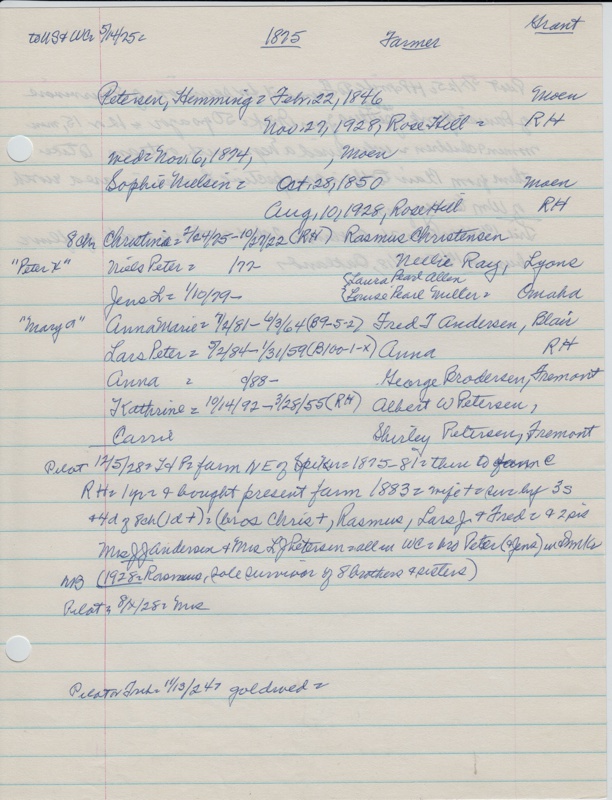 to US & WC= 5/14/25= 1875 Farmer Grant
Petersen, Hemming = Feb. 22, 1846 Moen
Nov. 27, 1928, Rose Hill = RH
wed = Nov. 6, 1874, , Moen
Sophie Nielsin = Oct. 28, 1850 Moen
Aug. 10, 1928, Rose Hill RH
8 chn Christina = 2/24/75-10/27/22 (RH) Rasmus Christensen
"Peter X" Niels Peter = 177- Nellie Ray, Lyons
{Laura Pearl Allen
Jens L = 1/10/79- {Louise Pearl Miller = Omaha
"Mary A" Anna Marie = 9/2/81 - 6/3/64 (B9-5-2) Fred T Andersen, Blair
Lars Peter = 9/2/84 - 1/31/59 (B100-1-X) Anna RH
Anna = 9/88- George Brodersen, Fremont
Kathrine = 10/14/92 - 3/28/55 (RH) Albert W Petersen,
Carrie Shirley Petersen, Fremont
Pilot 12/5/28 = farm NE of Spiker = 1875-81 = then to
RH = 1 yr & bought present farm 1883 = wife + = sur by 3s
& 4d of 8ch (1d+) = (bros Chris +, Rasmus, Lars J. & Fred = & 2 sis
Mrs J J Andersen & Mrs L J Petersen = all in WC = bro Peter (& Jens) in Dmk
NB (1928 = Rasmus, sole survivor of 8 brothers & sisters)
Pilot = 8/X/28 = Mrs
Pilot or Trib = 11/13/24 = gold wed =